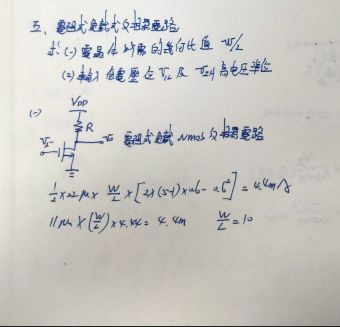 五、電阻式負載式反相器電路
求:(一)電晶体對應的幾何比值 W/L
(2)輸入低電壓位 VIL 及 VIH 高电压準位
(一)
VDD
R
Vi
Vo 電阻式負載 NMOS 反相器電路
1/2 × 22μ × W/L × [2×(5-1)×0.6 - 0.6²] = 4.4mA
11μ × (W/L) × 4.44 = 4.4m W/L = 10